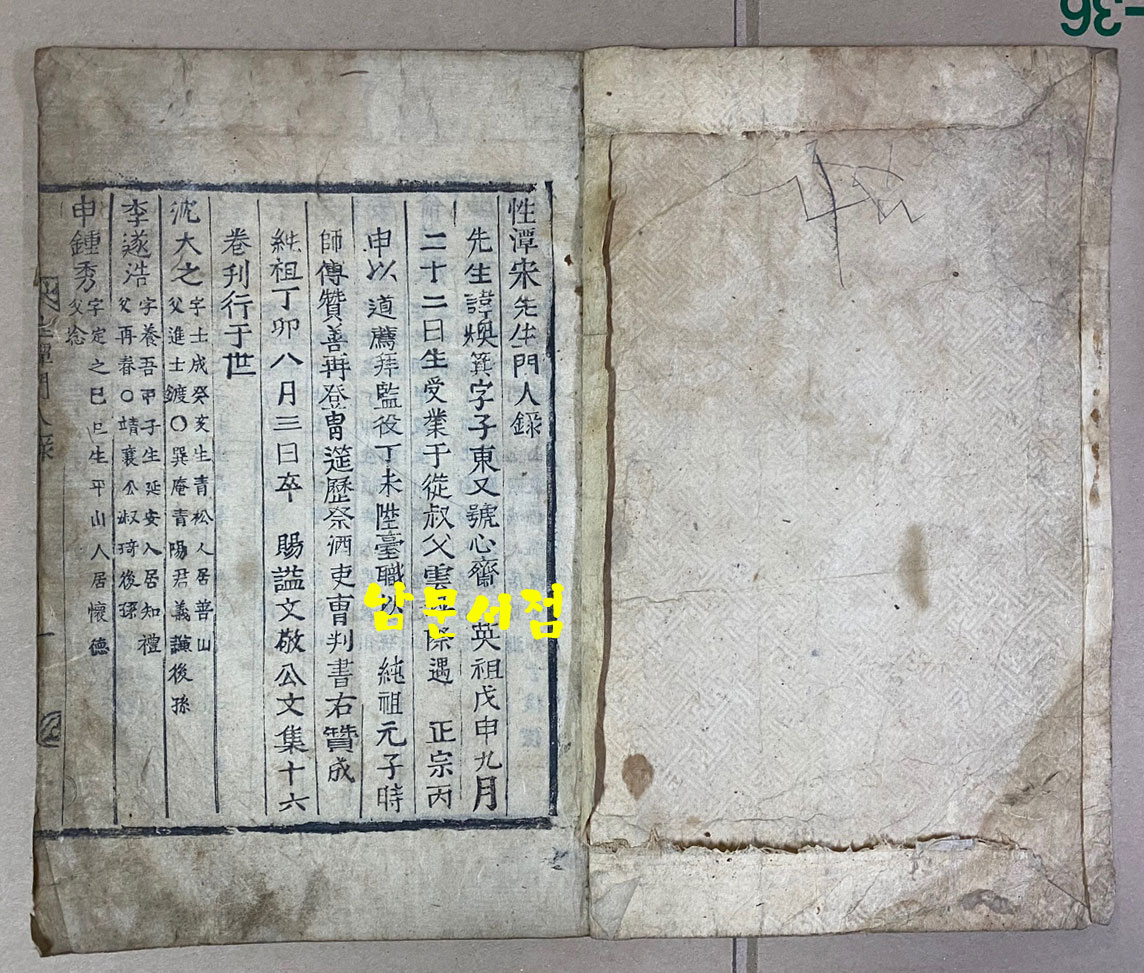 性潭宋先生門人錄
先生諱煥箕字子東又號心齋 英祖戊申九月
二十二日生受業于從叔父雲 際遇 正宗丙
申以道薦拜監役丁未陞臺職 純祖元子時
師傅贊善再登冑筵歷祭酒吏曺判書右贊成
純祖丁卯八月三日卒 賜諡文敬公文集十六
卷刊行于世
沈大之 字士成癸亥生青松人居普山
父進士鍍○巽庵青陽君義謙後孫
李遂浩 字養吾甲子生延安人居知禮
父再春○靖襄公淑琦後孫
申鍾秀 字定之己巳生平山人居懷德
父
潭門人錄
一
남문서점
36